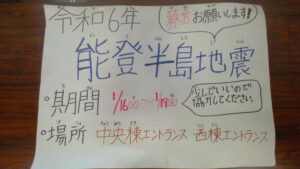 令和6年
募金お願いします!
能登半島地震
・期間 1/16(火)～1/19(金)
少しでいいので
協力してください。
・場所 中央棟エントランス 西棟エントランス